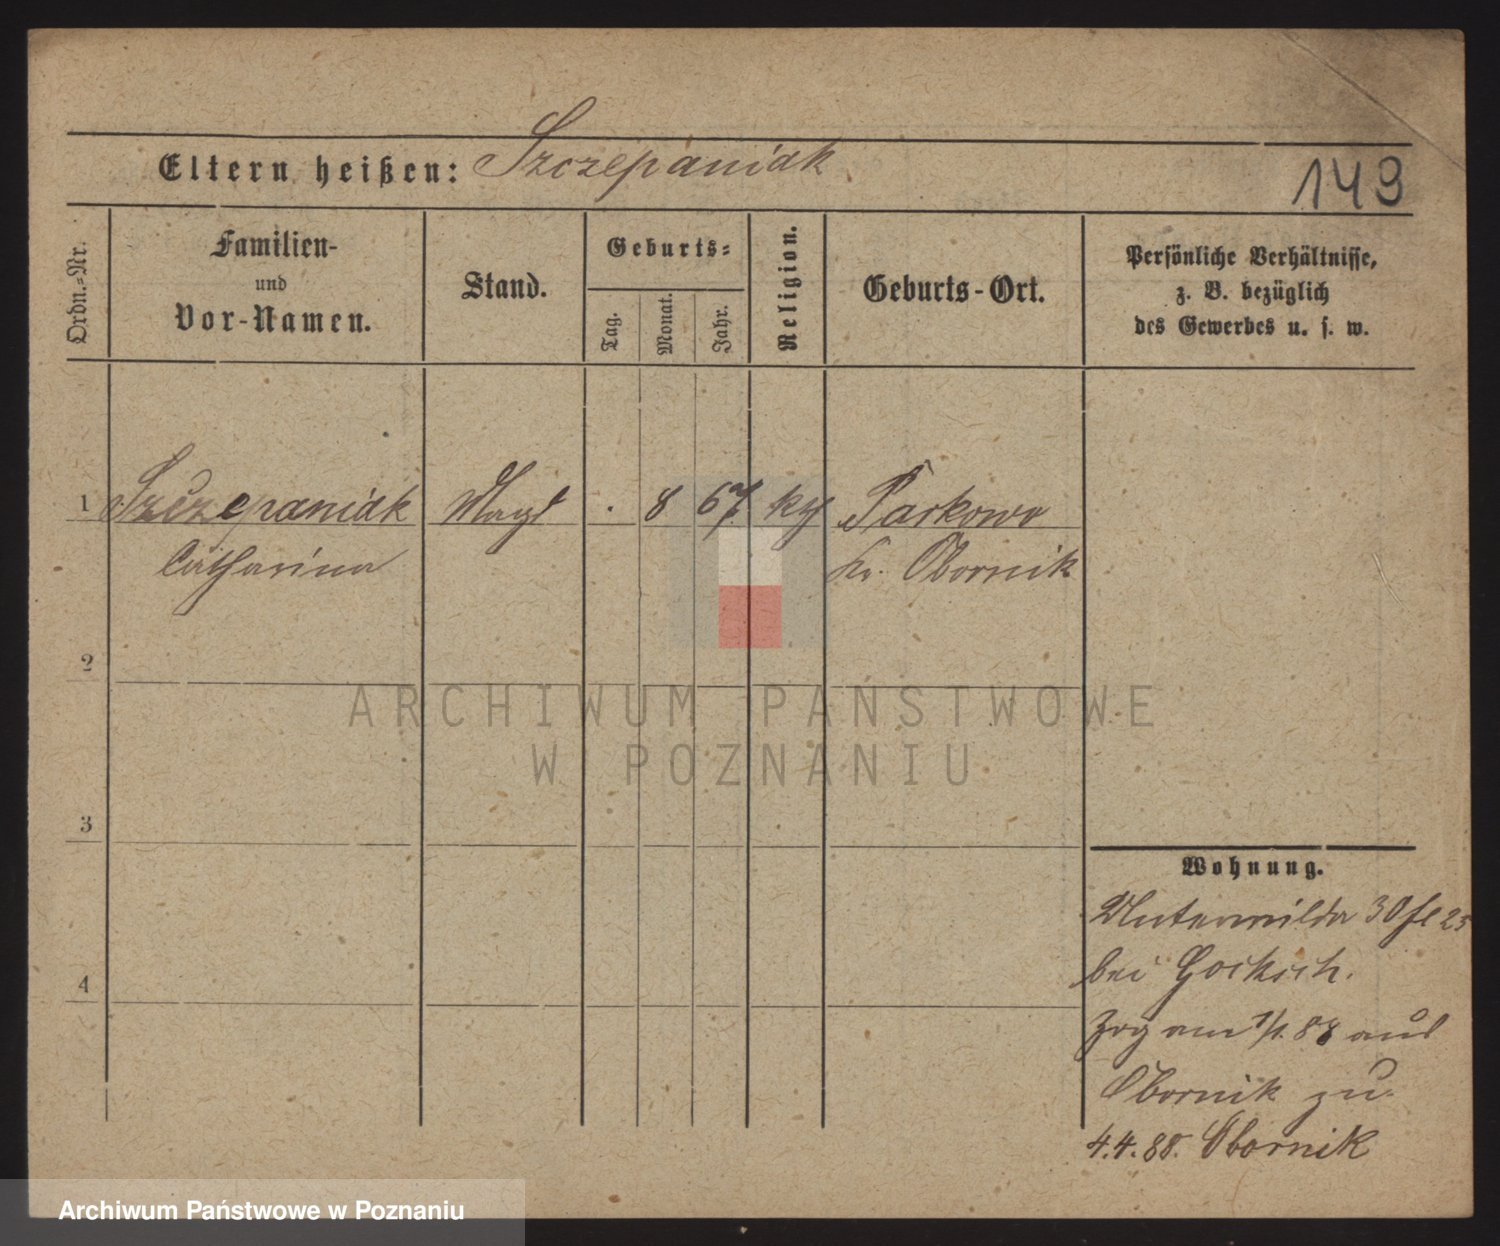 Eltern heißen: Szczepaniak
149
Ordn.=Nr.
Familien-
und
Vor-Namen.
Stand.
Geburts=
Tag.
Monat.
Jahr.
Religion.
Geburts-Ort.
Persönliche Verhältnisse,
z. B. bezüglich
des Gewerbes u. s. w.
1 Szczepaniak Magd . 8 67 kth Parkowo
Catharina Kr. Obornik
2
ARCHIWUM PAŃSTWOWE
W POZNANIU
3
Wohnung.
Unterwilda 30 fl 25
bei
4
Zog am 1/1. 88 aus
Obornik zu.
4.4.88. Obornik
Archiwum Państwowe w Poznaniu